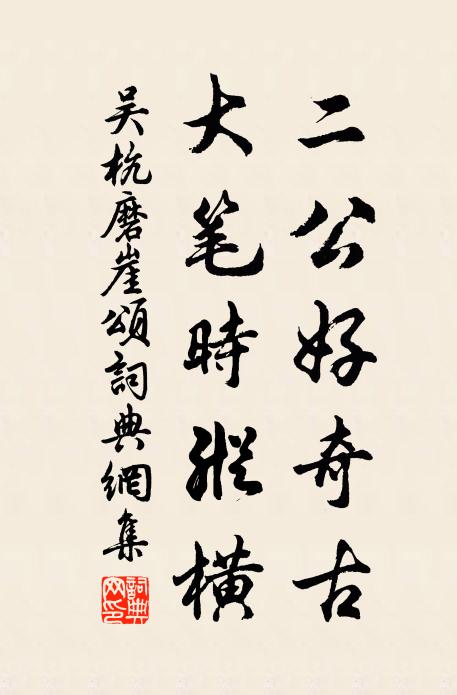 二公好奇古
大笔時縱橫
吴杭磨崖頌詞典網集
詞典網印